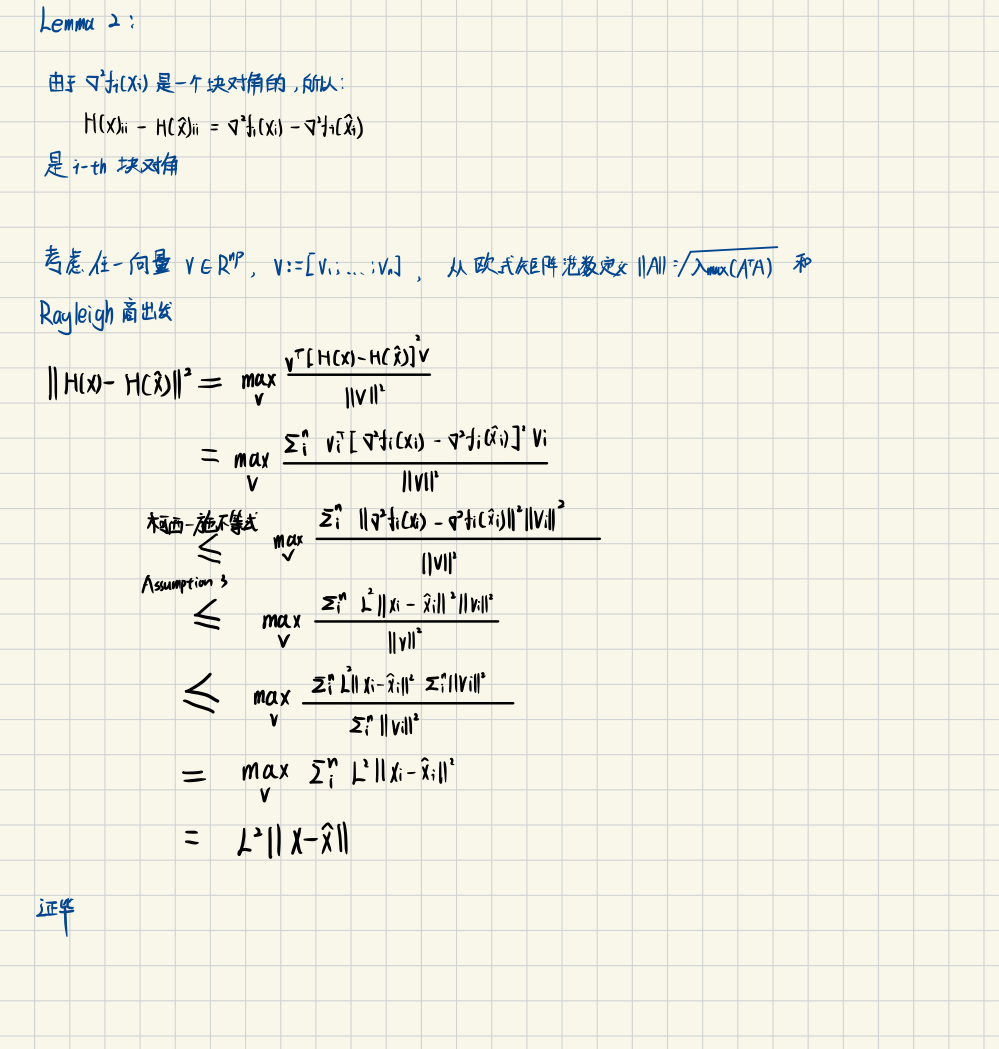 Lemma 2:
由于 ∇²fi(xi) 是一个块对角的,所以:
H(x)ii - H(x̂)ii = ∇²fi(xi) - ∇²fi(x̂i)
是 i-th 块对角
考虑任一向量 v ∈ R^np, v:=[v1;...;vn], 从欧式矩阵范数定义 ||A|| = √λmax(AᵀA) 和
Rayleigh 商出发
||H(x) - H(x̂)||² = max_v vᵀ[H(x)-H(x̂)]²v / ||v||²
= max_v Σi^n viᵀ[∇²fi(xi) - ∇²fi(x̂i)]² vi / ||v||²
柯西-施不等式
≤ max_v Σi^n ||∇²fi(xi) - ∇²fi(x̂i)||² ||vi||² / ||v||²
Assumption 3
≤ max_v Σi^n L²||xi - x̂i||² ||vi||² / ||v||²
≤ max_v Σi^n L²||xi - x̂i||² Σi^n ||vi||² / Σi^n ||vi||²
= max_v Σi^n L²||xi - x̂i||²
= L²||x - x̂||
证毕